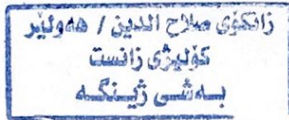 زانكۆی صلاح الدین / هەولێر
كۆلیژی زانست
بەشی ژینگە